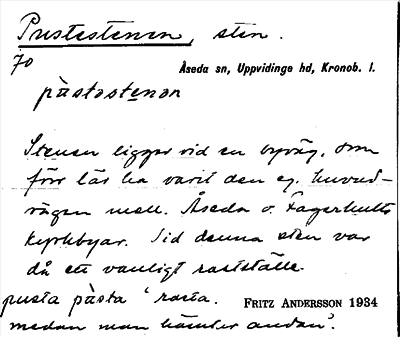 Pustestenen, sten.
70
Åseda sn, Uppvidinge hd, Kronob. l.
pàstastenan
Stenen ligger vid en byväg, som
förr lär ha varit den eg. huvud-
vägen mell. Åseda o. Fagerhults
kyrkbyar. Vid denna sten var
då ett vanligt rastställe.
pusta pàsta 'rasta. FRITZ ANDERSSON 1934
medan man hämtar andan'.